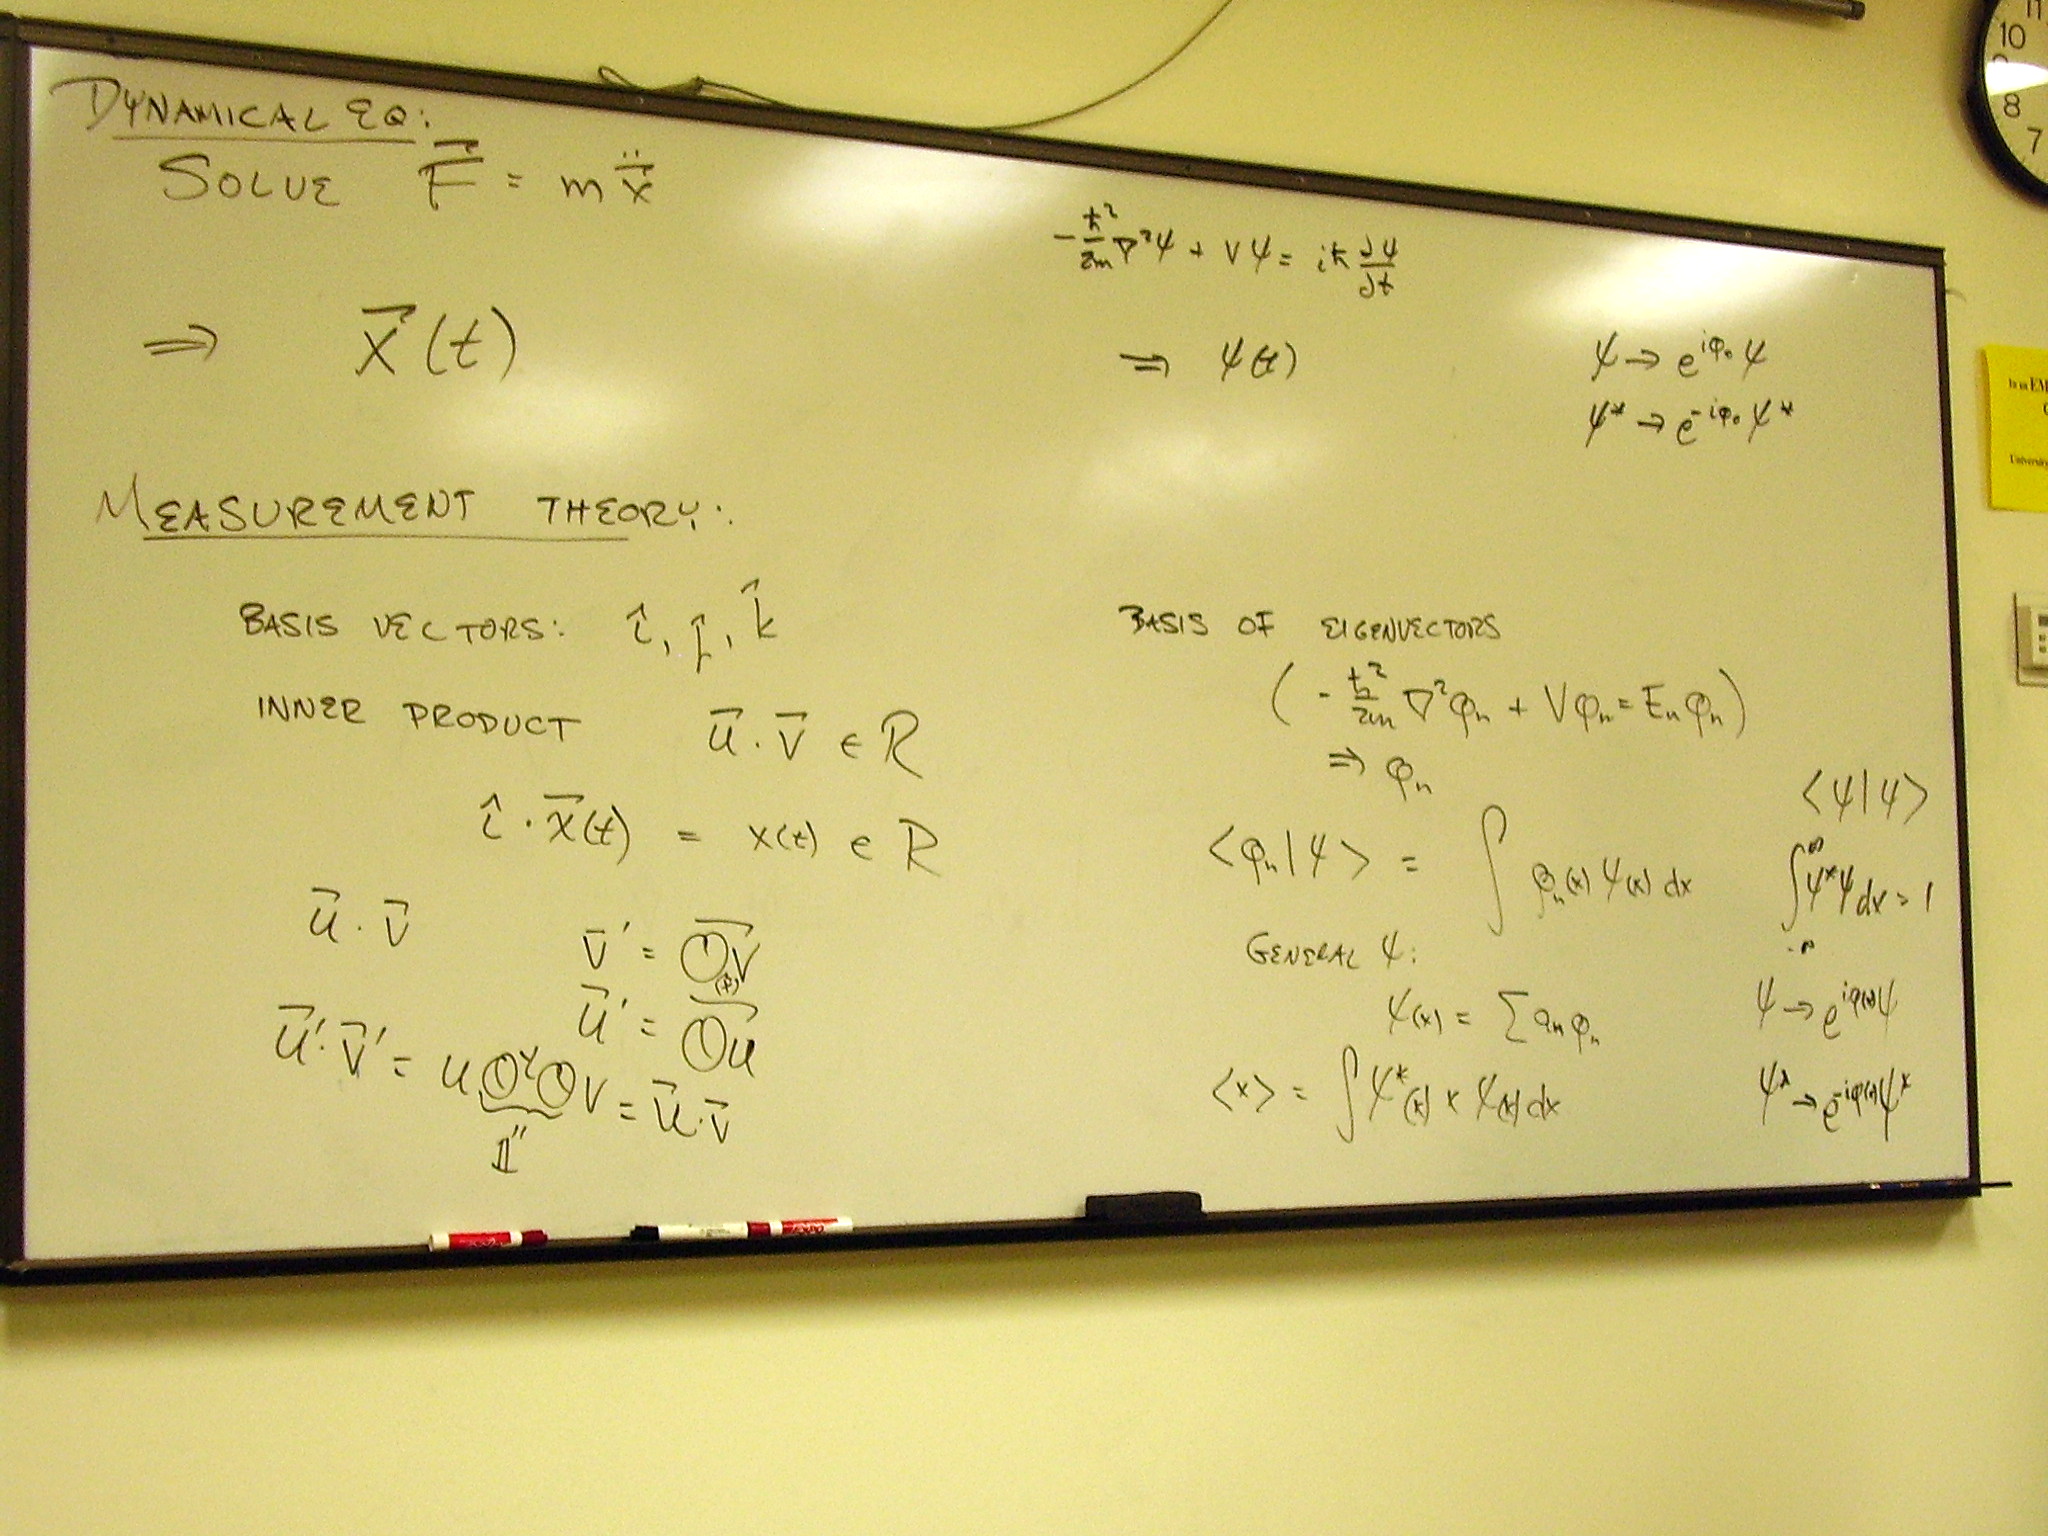 DYNAMICAL EQ:
SOLVE F⃗ = m ẍ⃗
⇒ x⃗(t)
-ħ²/2m ∇²ψ + Vψ = iħ ∂ψ/∂t
⇒ ψ(t)
ψ → e^{iφ₀} ψ
ψ* → e^{-iφ₀} ψ*
MEASUREMENT THEORY:
BASIS VECTORS: î, ĵ, k̂
INNER PRODUCT u⃗ · v⃗ ∈ R
î · x⃗(t) = x(t) ∈ R
u⃗ · v⃗
v⃗' = Θv⃗
(φ)
u⃗' = Θu⃗
u⃗' · v⃗' = uΘᵀΘv = u⃗ · v⃗
𝟙"
BASIS OF EIGENVECTORS
(-ħ²/2m ∇²φₙ + Vφₙ = Eₙφₙ)
⇒ φₙ
<φₙ|ψ> = ∫ φₙ(x) ψ(x) dx
GENERAL ψ:
ψ(x) = Σ aₙ φₙ
<x> = ∫ψ*(x) x ψ(x) dx
<ψ|ψ>
∫_{-∞}^{∞} ψ*ψ dx = 1
ψ → e^{iφ(x)}ψ
ψ* → e^{-iφ(x)}ψ*
11
10
8
7
In an EM
University